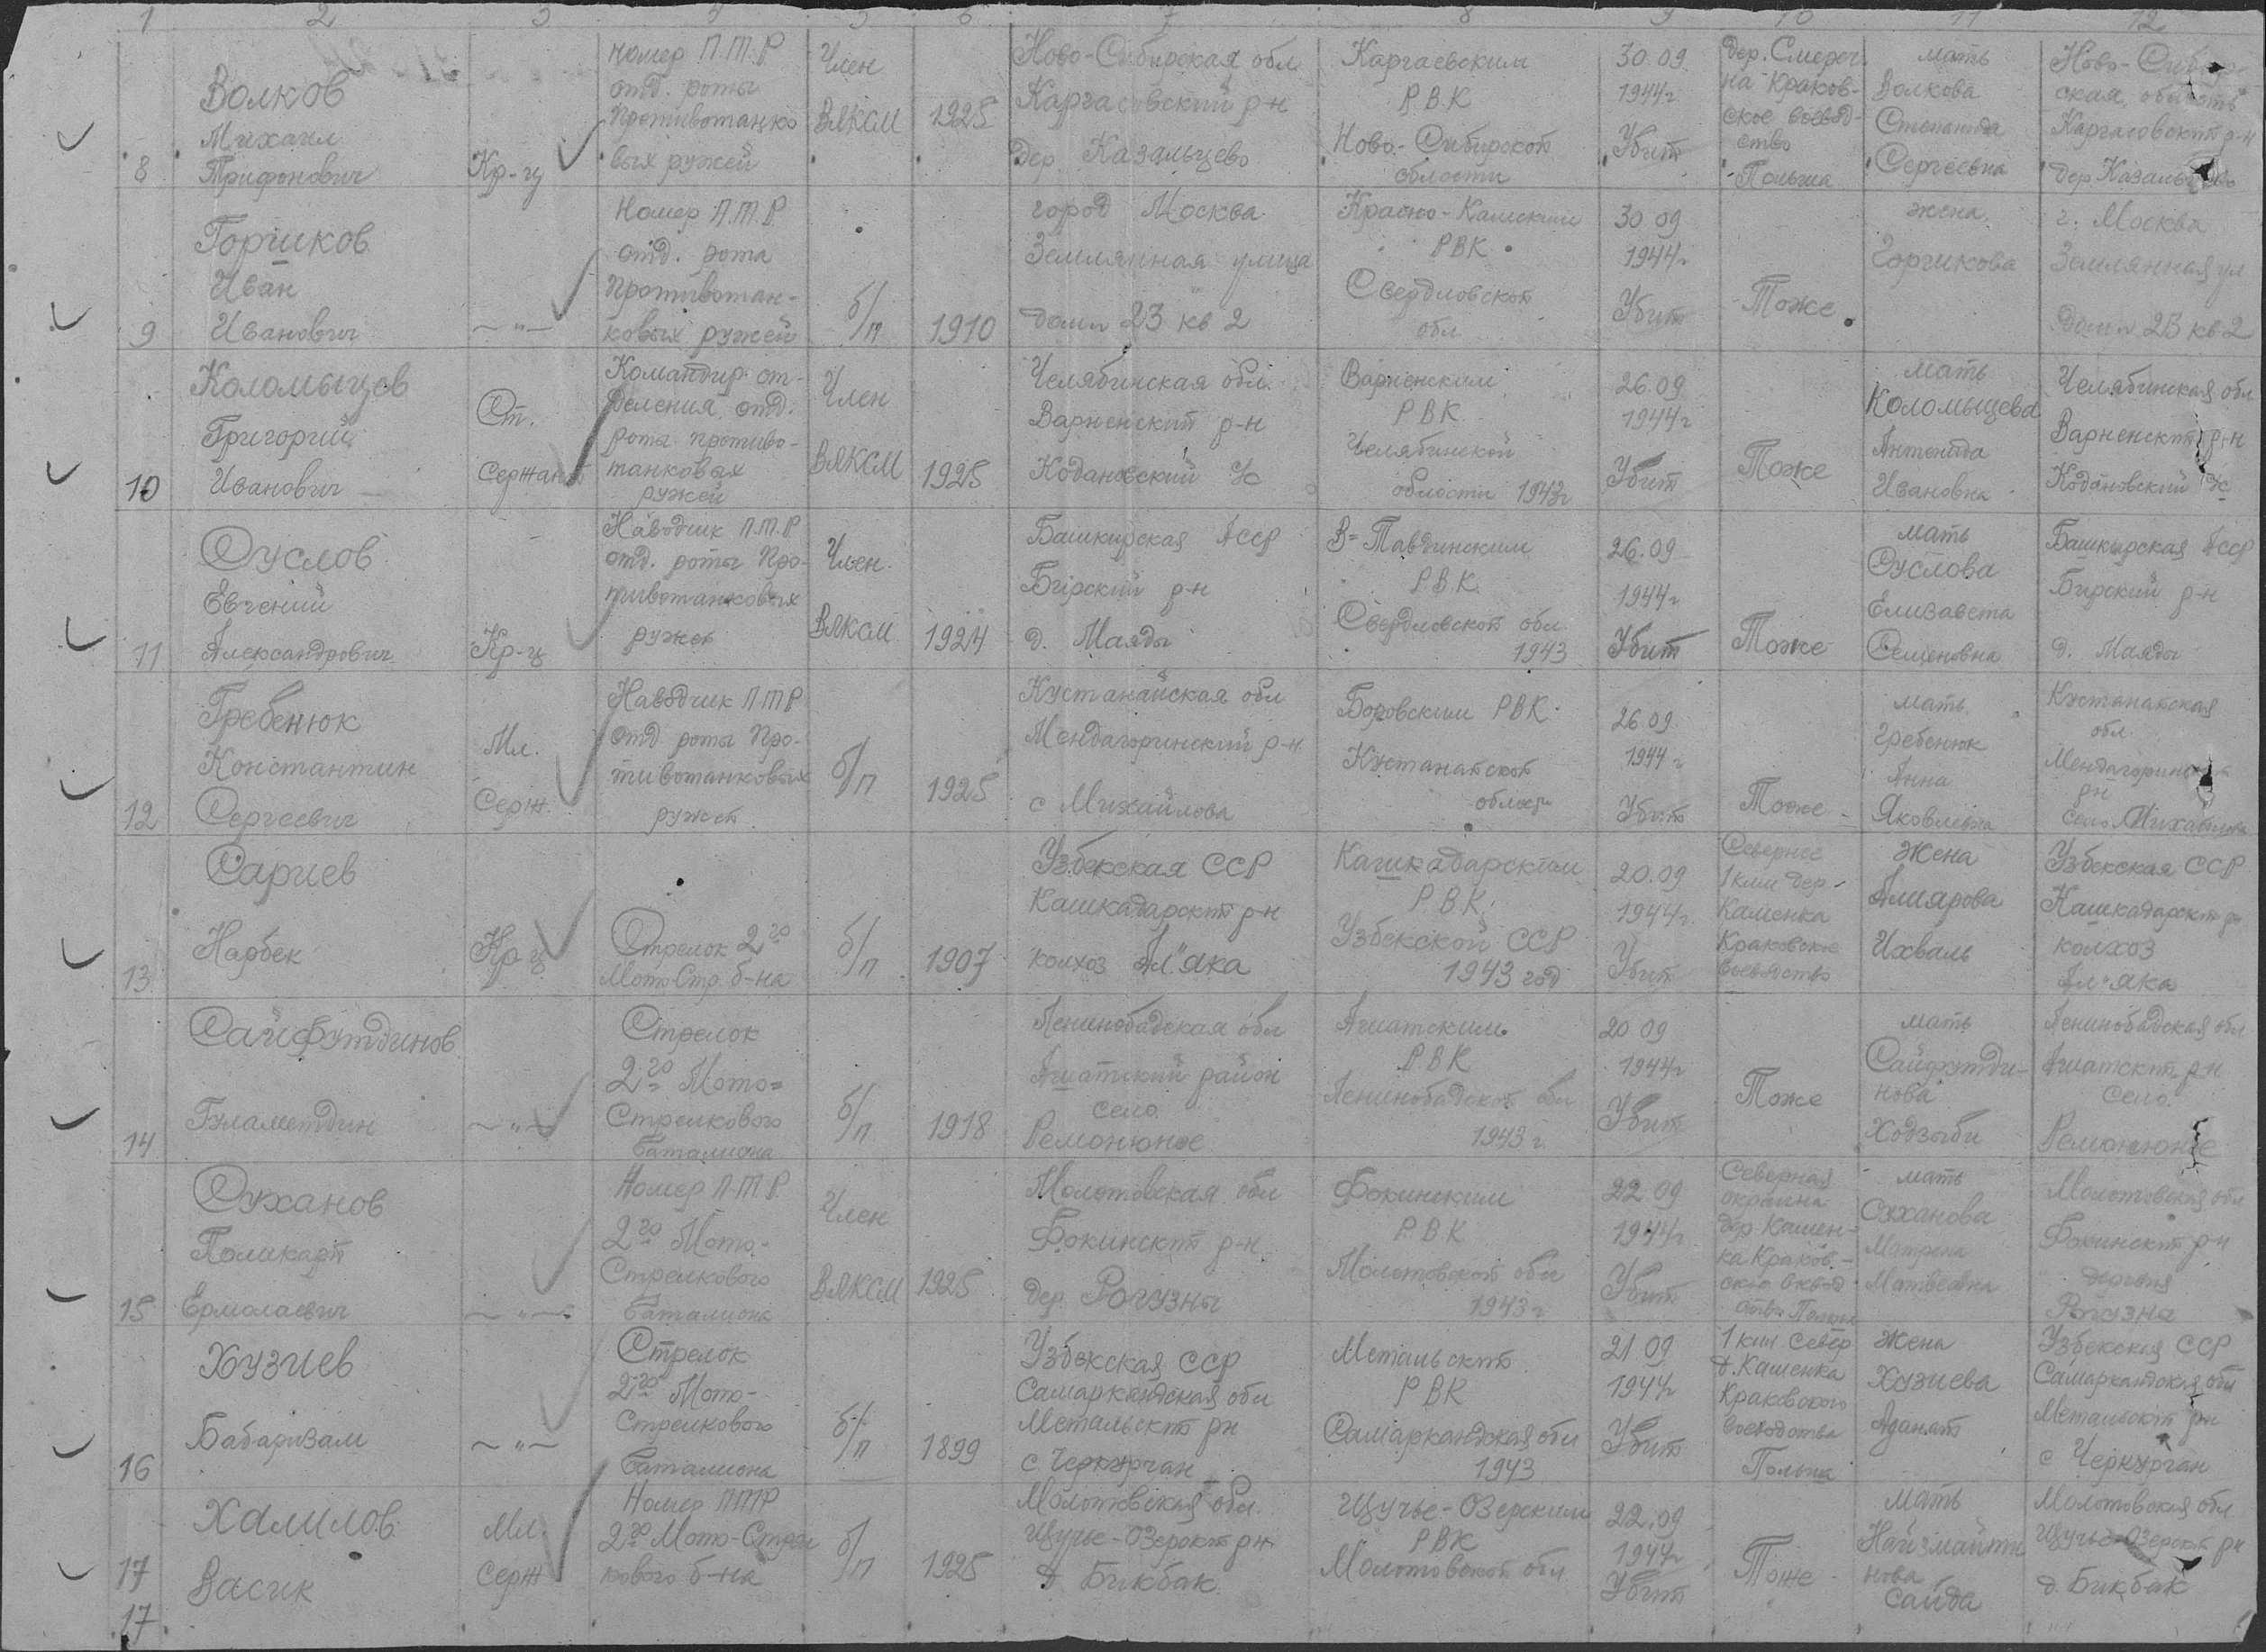 1 2 3 4 5 6 7 8 9 10 11 12
8 Волков Михаил Трифонович Кр-ц номер П.Т.Р отд. роты противотанковых ружей Член ВЛКСМ 1925 Ново-Сибирская обл Каргасовский р-н дер. Казальцево Каргаевским Р.В.К Ново-Сибирской области 30.09 1944г Убит дер. Смереч на Краковское воевод-ство Польша мать Волкова Степанида Сергеевна Ново-Сибирская область Каргасовский р-н дер Казальцево
9 Горшков Иван Иванович —"— Номер П.Т.Р отд. рота противотан-ковых ружей б/п 1910 город Москва Землянная улица дом № 23 кв 2 Красно-Камским РВК Свердловской обл 30 09 1944г Убит Тоже жена Горшкова г. Москва Землянная ул дом № 23 кв. 2
10 Коломыцев Григорий Иванович Ст. Сержант Командир от-деления отд. роты противо-танковых ружей Член ВЛКСМ 1925 Челябинская обл. Варненский р-н Кодановский с/с Варненским РВК Челябинской области 1943г 26.09 1944г Убит Тоже мать Коломыцева Ивановна Челябинская обл Варненский р-н Кодановский с/с
11 Суслов Евгений Александрович Кр-ц Наводчик П.Т.Р отд. роты про-тивотанковых ружей Член ВЛКСМ 1924 Башкирская АССР Бирский р-н д. Маяды В-Тавдинским Р.В.К. Свердловской обл 1943 26.09 1944г Убит Тоже мать Суслова Елизавета Семеновна Башкирская АССР Бирский р-н д. Маяды
12 Гребенюк Константин Сергеевич Мл. Серж. Наводчик ПТР отд роты про-тивотанковых ружей б/п 1925 Кустанайская обл Мендагоринский р-н с Михайлова Боровским РВК Кустанайской области 26.09 1944г Убит Тоже мать Гребенюк Анна Яковлевна Кустанайская обл. Мендагоринский рн село Михайлова
13 Сариев Нарбек Кр-ц Стрелок 2го Мото Стр. б-на б/п 1907 Узбекская ССР Кашкадарский р-н колхоз Ал"яка Кашкадарским Р.В.К. Узбекской ССР 1943 год 20.09 1944г. Убит Севернее 1 клм дер. Каменка Краковское воеводство Жена Алиярова Ихваль Узбекская ССР Кашкадарский рн колхоз Ал"яка
14 Сайфутдинов —"— Стрелок 2го Мото-Стрелкового баталиона б/п 1918 Ленинобадская обл район село Ремонюное Р.В.К Ленинобадской обл 1943 г. 20 09 1944г Убит Тоже мать Сайфутди-нова Ходзыби Ленинобадская обл р-н село Ремонюное
15 Суханов Поликарп Ермолаевич —"— Номер П.Т.Р 2го Мото-Стрелкового баталиона Член ВЛКСМ 1925 Молотовская обл Фокинский р-н дер. Рогузны Фокинским Р.В.К Молотовской обл 1943 г 22 09 1944г Убит Северная окраина дер Камен-ка Краков-ское воевод ство Польша мать Суханова Матрена Матвеевна Молотовская обл Фокинский р-н деревня Рогузна
16 Хузиев Бабаризам —"— Стрелок 2го Мото-Стрелкового баталиона б/п 1899 Узбекская ССР Самаркандская обл Метальский рн с. Черкурган Метальский РВК Самаркандская обл 1943 21 09 1944г Убит 1 клм север д. Каменка Краковского воеводства Польша Жена Хузиева Аданат Узбекская ССР Самаркандская обл Метальский рн с Черкурган
17 Халилов Васик Мл. Серж Номер ПТР 2го Мото-Стрел кового б-на б/п 1925 Молотовская обл. Щучье-Озерский рн д Бикбак Щучье-Озерским РВК Молотовской обл. 22.09 1944г Убит Тоже мать нова Сайда Молотовская обл Щучье-Озерский рн д. Бикбак
17